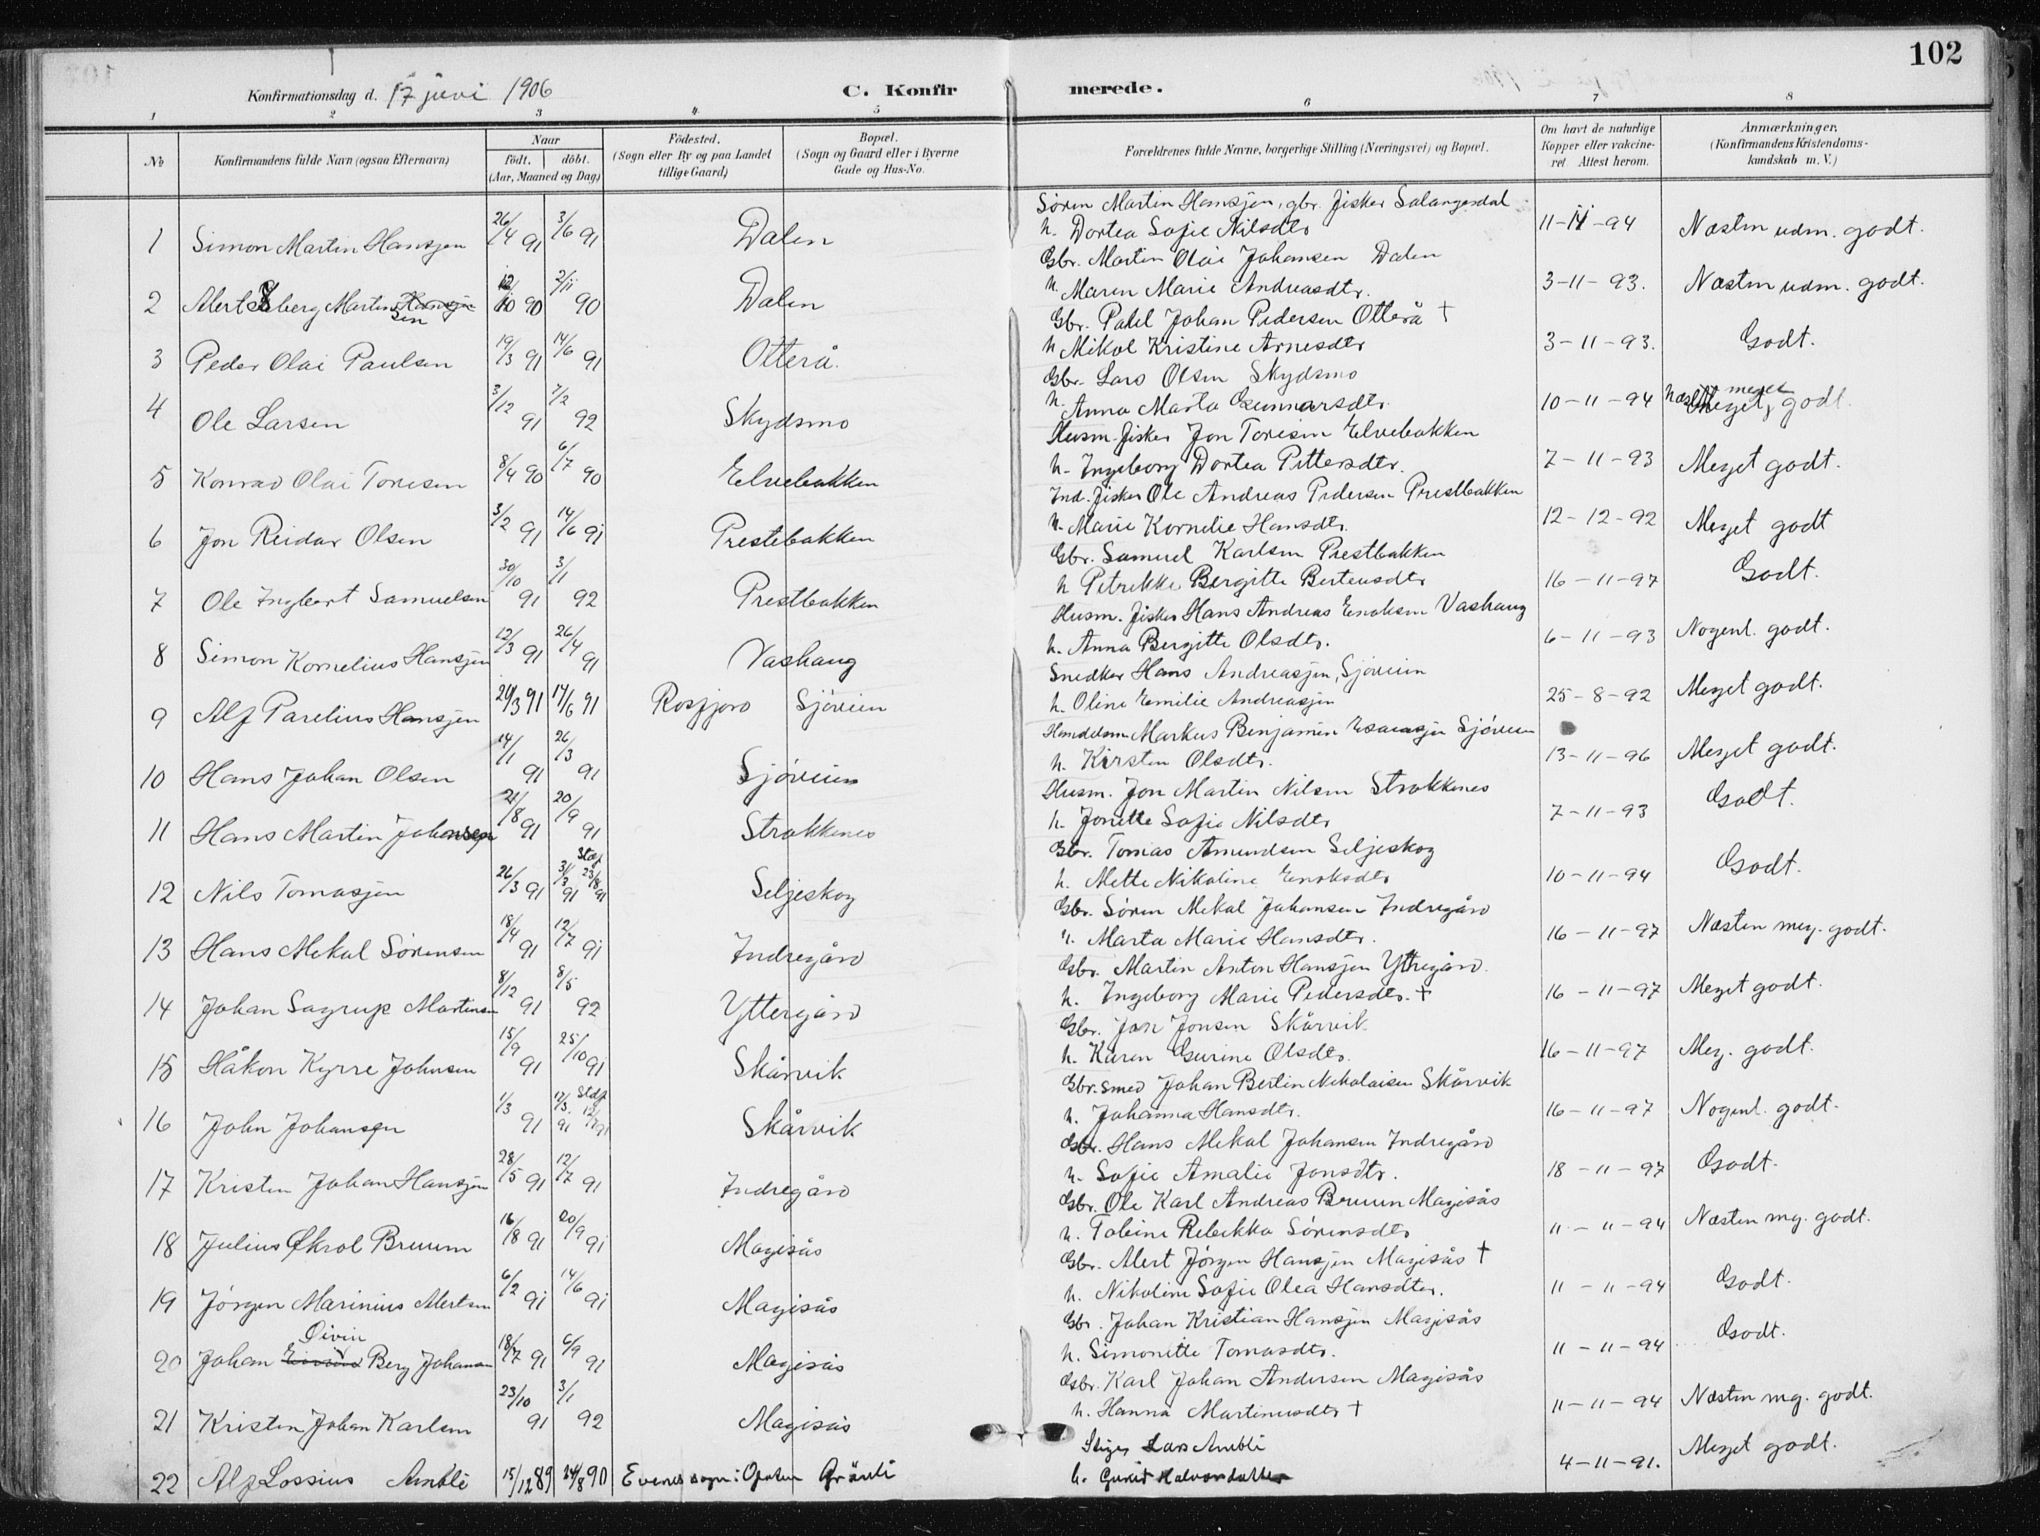 102
Konfirmationsdag d. 17 juni 1906
C. Konfirmerede.
1 2 3 4 5 6 7 8
No
Konfirmandens fulde Navn (ogsaa Efternavn)
Naar
födt. döbt.
(Aar, Maaned og Dag)
Födested.
(Sogn eller By og paa Landet
tillige Gaard)
Bopæl.
(Sogn og Gaard eller i Byerne
Gade og Hus-No.
Forældrenes fulde Navne, borgerlige Stilling (Næringsvei) og Bopæl.
Om havt de naturlige
Kopper eller vakcine-
ret Attest herom.
Anmærkninger.
(Konfirmandens Kristendoms-
kundskab m. V.)
Sören Martin Hansjen, gbr. fisker Salangsdal
1 Simon Martin Hansjen 26/4 91 3/6 91 Dalen h. Dortea Sofie Nilsdtr 11-11-94 Næsten udm. godt.
Gbr. Martin Olai Johansen Dalen
2 Alert Seberg Martinsen 90 2/11 90 Dalen h. Maren Marie Andreasdtr. 3-11-93. Næsten udm. godt.
Gbr. Paul Johan Pedersen Otterå †
3 Peder Olai Paulsen 19/3 91 14/6 91 Otterå. h Mikal Kristine Arnesdtr 3-11-93. Godt.
Gbr. Lars Olsen Skydsmo
4 Ole Larsen 3/12 91 7/2 92 Skydsmo h. Anna Marta Gunnarsdtr. 10-11-94 Næsten meget godt.
Husm. fisker Jon Toresen Elvebakken
5 Konrad Olai Toresen 8/4 90 6/7 90 Elvebakken h. Ingeborg Dortea Pittersdtr. 7-11-93 Meget godt.
Ind. fisker Ole Andreas Pedersen Prestbakken
6 Jon Reidar Olsen 3/2 91 14/6 91 Prestebakken h. Marie Kornelie Hansdtr. 12-12-92 Meget godt
Gbr. Samuel Karlsen Prestbakken
7 Ole Ingbert Samuelsen 30/10 91 3/1 92 Prestbakken h Petrikke Bergitte Berteusdtr 16-11-97 Godt.
Husm. fisker Hans Andreas Enoksen Vashaug
8 Simon Kornelius Hansjen 12/3 91 26/4 91 Vashaug h. Anna Bergitte Olsdtr. 6-11-93 Nogenl. godt.
Snedker Hans Andreasjen, Sjöveien
9 Alf Parelius Hansjen 29/3 91 14/6 91 Rosfjord Sjöveien h. Oline Emilie Andreasjen 25-8-92 Meget godt.
Handelsm Markus Benjamin Esaiasjen Sjöveien
10 Hans Johan Olsen 14/1 91 26/3 91 Sjöveien h. Kirsten Olsdtr. 13-11-96 Meget godt.
Husm. Jon Martin Nilsen Strokkenes
11 Hans Martin Johnsen 21/8 91 20/9 91 Strokkenes h. Jonette Sofie Nilsdtr 7-11-93 Godt.
Gbr. Tomas Amundsen Seljeskog
12 Nils Tomasjen 26/3 91 31/3 91 Stadf 23/8 91 Seljeskog h. Mette Nikoline Enoksdtr 10-11-94 Godt.
Gbr. Sören Mekal Johansen Indregård
13 Hans Mekal Sörensen 18/4 91 12/7 91 Indregård h. Marta Marie Hansdtr. 16-11-97 Næsten meg. godt.
Gbr. Martin Anton Hansjen Yttregård.
14 Johan Sagrup Martinsen 8/12 91 8/5 92 Yttergård h. Ingeborg Marie Pedersdtr. † 16-11-97 Meget godt.
Gbr. Jon Jonsen Skårvik
15 Håkon Kyrre Johnsen 15/9 91 25/10 91 Skårvik h. Karen Gurine Olsdtr. 16-11-97 Meg. godt.
Gbr. smed Johan Bertin Nikolaisen Skårvik
16 John Johansen 1/3 91 12/3 91 Stdf 12/7 91 Skårvik h. Johanna Hansdtr. 16-11-97 Nogenl. godt.
Gbr. Hans Mekal Johansen Indregård
17 Kristen Johan Hansjen 28/5 91 12/7 91 Indregård h. Sofie Amalie Jonsdtr. 18-11-97 Godt.
Gbr. Ole Karl Andreas Bruun Magisås
18 Julius Økrol Bruum 16/8 91 20/9 91 Magisås h. Tobine Rebekka Sörensdtr 11-11-94 Næsten mg. godt.
Gbr. Alert Jörgen Hansjen Magisås †
19 Jörgen Marinius Alertsen 6/2 91 14/6 91 Magisås h. Nikoline Sofie Olea Hansdtr. 11-11-94 Godt.
Gbr. Johan Kristian Hansjen Magisås
20 Johan Oivin Berg Johansen 18/7 91 6/9 91 Magisås h. Simonette Tomasdtr. 11-11-94 Godt.
Gbr. Karl Johan Andersen Magisås
21 Kristen Johan Karlsen 23/10 91 3/1 92 Magisås h. Hanna Martinusdtr † 11-11-94 Næsten mg. godt.
Stiger Lars Ambli
22 Alf Lossius Ambli 15/12 89 24/8 90 Evenes sogn: Grånli h. Gunild Halvorsdatter 4-11-91. Meget godt.